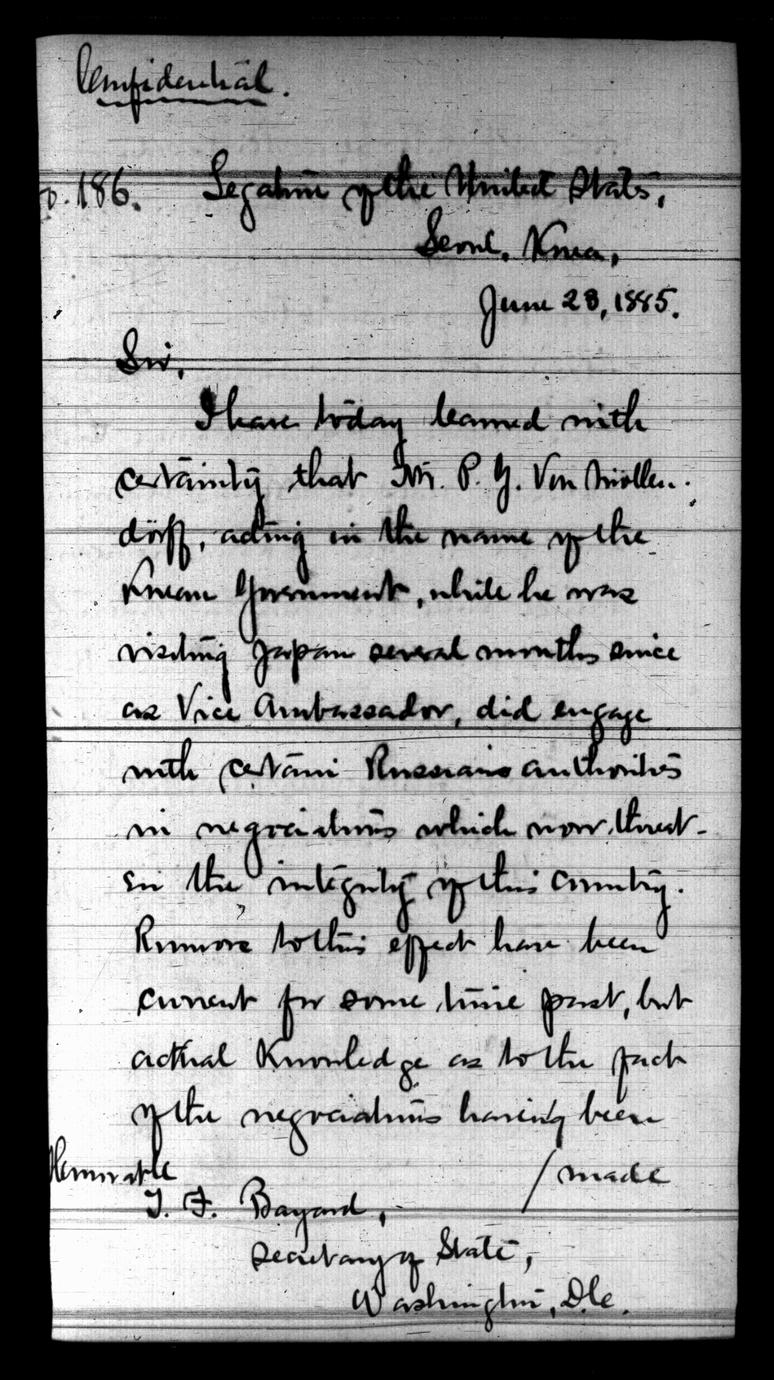 Confidential.
o. 186. Legation of the United States,
Seoul, Korea,
June 23, 1885.
Sir,
I have today learned with
certainty that Mr. P. G. Von Möllen-
dörff, acting in the name of the
Korean Government, while he was
visiting Japan several months since
as Vice Ambassador, did engage
with certain Russians authorities
in negociations which now threat-
en the integrity of this country.
Rumors to this effect have been
current for some time past, but
actual knowledge as to the fact
of the negociations having been
/ made
Honorable
T. F. Bayard,
Secretary of State,
Washington, D.C.